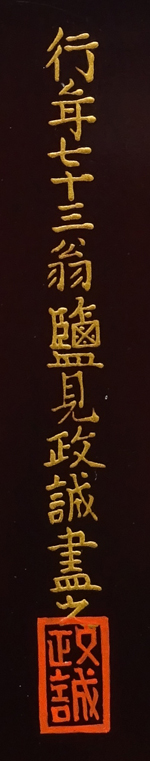 行年七十三翁鹽見政誠畫之
政誠